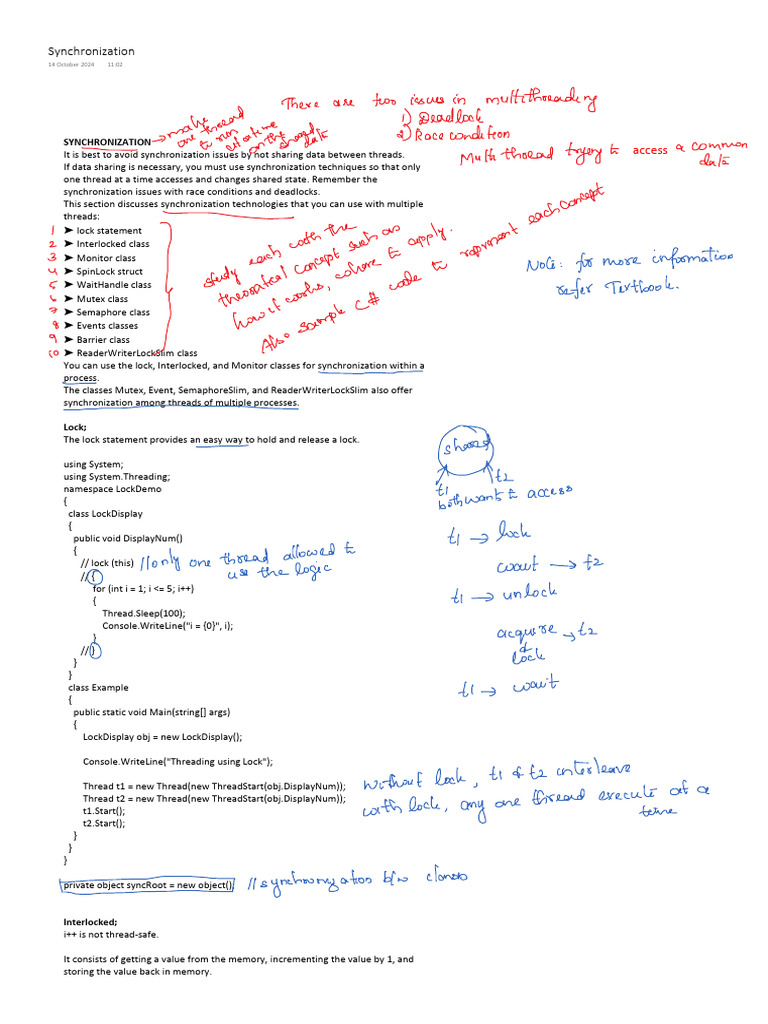 Synchronization
14 October 2024 11:02
There are two issues in multithreading
1) Deadlock
2) Race condition
Multi thread trying to access a common
data
SYNCHRONIZATION
make
one thread
to run
at a time
on the
shared
data
It is best to avoid synchronization issues by not sharing data between threads.
If data sharing is necessary, you must use synchronization techniques so that only
one thread at a time accesses and changes shared state. Remember the
synchronization issues with race conditions and deadlocks.
This section discusses synchronization technologies that you can use with multiple
threads:
1 ➤ lock statement
2 ➤ Interlocked class
3 ➤ Monitor class
4 ➤ SpinLock struct
5 ➤ WaitHandle class
6 ➤ Mutex class
7 ➤ Semaphore class
8 ➤ Events classes
9 ➤ Barrier class
10 ➤ ReaderWriterLockSlim class
study each with the
theoretical concept such as
how it works, where to apply.
Also sample C# code to represent each concept
Note: for more information
refer Textbook.
You can use the lock, Interlocked, and Monitor classes for synchronization within a
process.
The classes Mutex, Event, SemaphoreSlim, and ReaderWriterLockSlim also offer
synchronization among threads of multiple processes.
Lock;
The lock statement provides an easy way to hold and release a lock.
using System;
using System.Threading;
namespace LockDemo
{
class LockDisplay
{
public void DisplayNum()
{
// lock (this) //only one thread allowed to
use the logic
// {
for (int i = 1; i <= 5; i++)
{
Thread.Sleep(100);
Console.WriteLine("i = {0}", i);
}
// }
}
}
class Example
{
public static void Main(string[] args)
{
LockDisplay obj = new LockDisplay();
Console.WriteLine("Threading using Lock");
Thread t1 = new Thread(new ThreadStart(obj.DisplayNum));
Thread t2 = new Thread(new ThreadStart(obj.DisplayNum));
t1.Start();
t2.Start();
}
}
}
shared
t1 t2
both want to access
t1 → lock
wait → t2
t1 → unlock
acquire → t2
&
lock
t1 → wait
without lock, t1 & t2 interleave
with lock, any one thread execute at a
time
private object syncRoot = new object(); //synchronization b/w
Interlocked;
i++ is not thread-safe.
It consists of getting a value from the memory, incrementing the value by 1, and
storing the value back in memory.